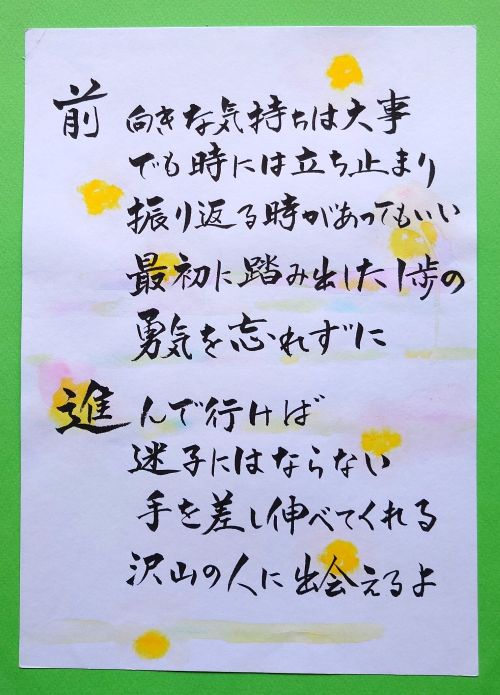 前向きな気持ちは大事
でも時には立ち止まり
振り返る時があってもいい
最初に踏み出した1歩の
勇気を忘れずに
進んで行けば
迷子にはならない
手を差し伸べてくれる
沢山の人に出会えるよ